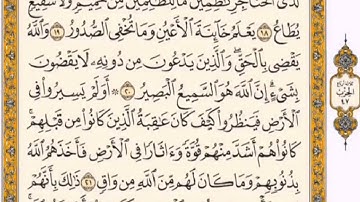 لَدَى ٱلْحَنَاجِرِ كَٰظِمِينَ مَا لِلظَّٰلِمِينَ مِنْ حَمِيمٍ وَلَا شَفِيعٍ
يُطَاعُ ١٨ يَعْلَمُ خَآئِنَةَ ٱلْأَعْيُنِ وَمَا تُخْفِى ٱلصُّدُورُ ١٩ وَٱللَّهُ
يَقْضِى بِٱلْحَقِّ وَٱلَّذِينَ يَدْعُونَ مِن دُونِهِۦ لَا يَقْضُونَ
بِشَىْءٍ إِنَّ ٱللَّهَ هُوَ ٱلسَّمِيعُ ٱلْبَصِيرُ ٢٠ ۞ أَوَلَمْ يَسِيرُوا۟ فِى
ٱلْأَرْضِ فَيَنظُرُوا۟ كَيْفَ كَانَ عَٰقِبَةُ ٱلَّذِينَ كَانُوا۟ مِن قَبْلِهِمْ
كَانُوا۟ هُمْ أَشَدَّ مِنْهُمْ قُوَّةً وَءَاثَارًا فِى ٱلْأَرْضِ فَأَخَذَهُمُ ٱللَّهُ
بِذُنُوبِهِمْ وَمَا كَانَ لَهُم مِّنَ ٱللَّهِ مِن وَاقٍ ٢١ ذَٰلِكَ بِأَنَّهُمْ
الحزب
٤٧